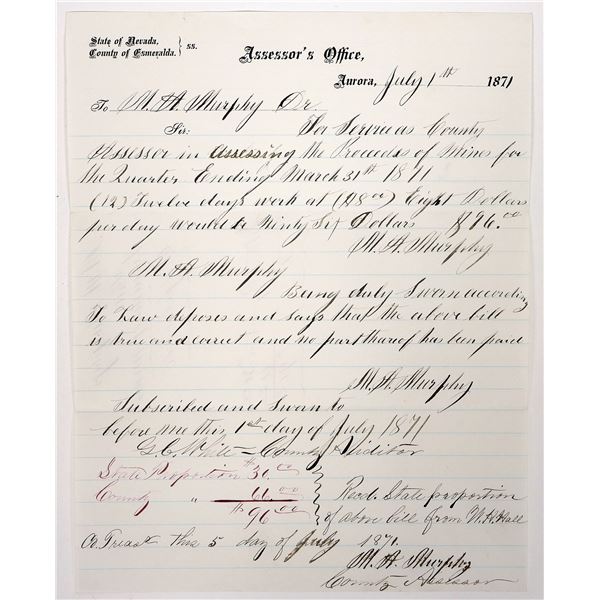 State of Nevada,
County of Esmeralda. } ss.
Assessor's Office,
Aurora, July 1st 1871
To M. A. Murphy Dr.
Sir: For Services County
Assessor in Assessing the Proceeds of Mines for
the Quarter Ending March 31st 1871
(12) Twelve days work at ($8.00) Eight Dollars
per day would be Ninty Six Dollars $96.00
M. A. Murphy
M. A. Murphy
Being duly Sworn according
To Law deposes and says that the above bill
is true and correct and no part thereof has been paid
M. A. Murphy
Subscribed and Sworn to
before me this 1st day of July 1871
G. C. White - County Auditor
State Proportion $30.00
County " 66.00
$96.00
Recd. State proportion
of above bill from W. H. Hall
Co. Treasr this 5 day of July 1871.
M. A. Murphy
County Assessor